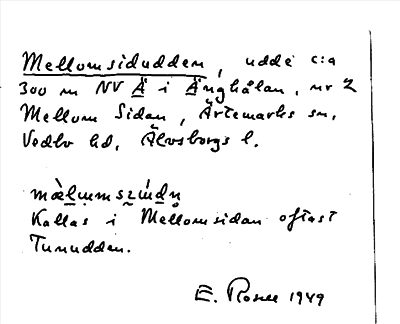 Mellomsidudden, udde c:a
300 m NV Ä i Änghålan, nr 2
Mellom Sidan, Ärtemarks sn,
Vedbo hd, Älvsborgs l.
Kallas i Mellomsidan oftast
Tunudden.
E. Rosell 1949